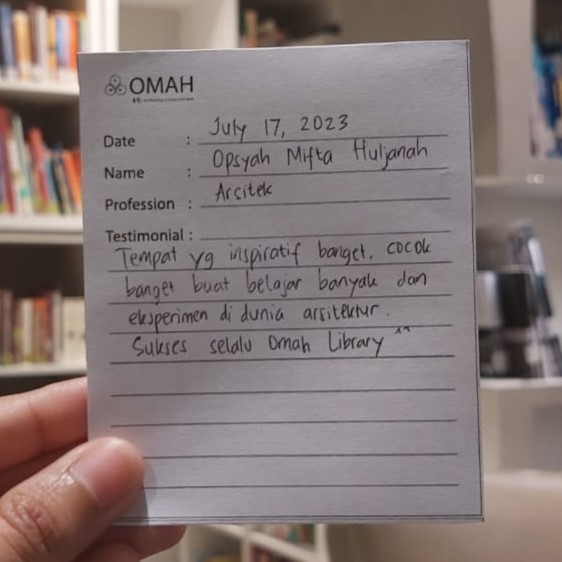 OMAH
Date : July 17, 2023
Name : Opsyah Mifta Huljanah
Profession : Arsitek
Testimonial :
Tempat yg inspiratif banget. cocok
banget buat belajar banyak dan
eksperimen di dunia arsitektur.
Sukses selalu Omah Library ^^